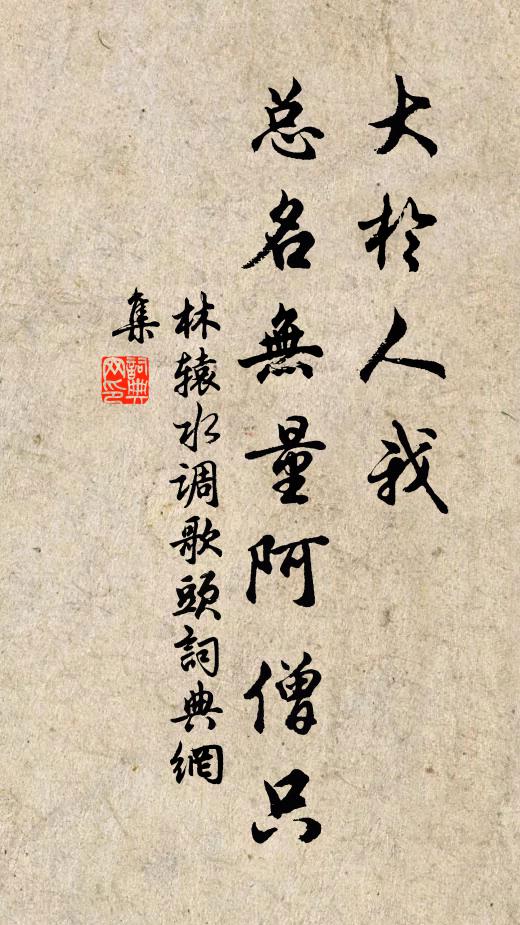 大於人我
总名無量阿僧只
林辕水调歌頭詞典網
集
詞典
网印